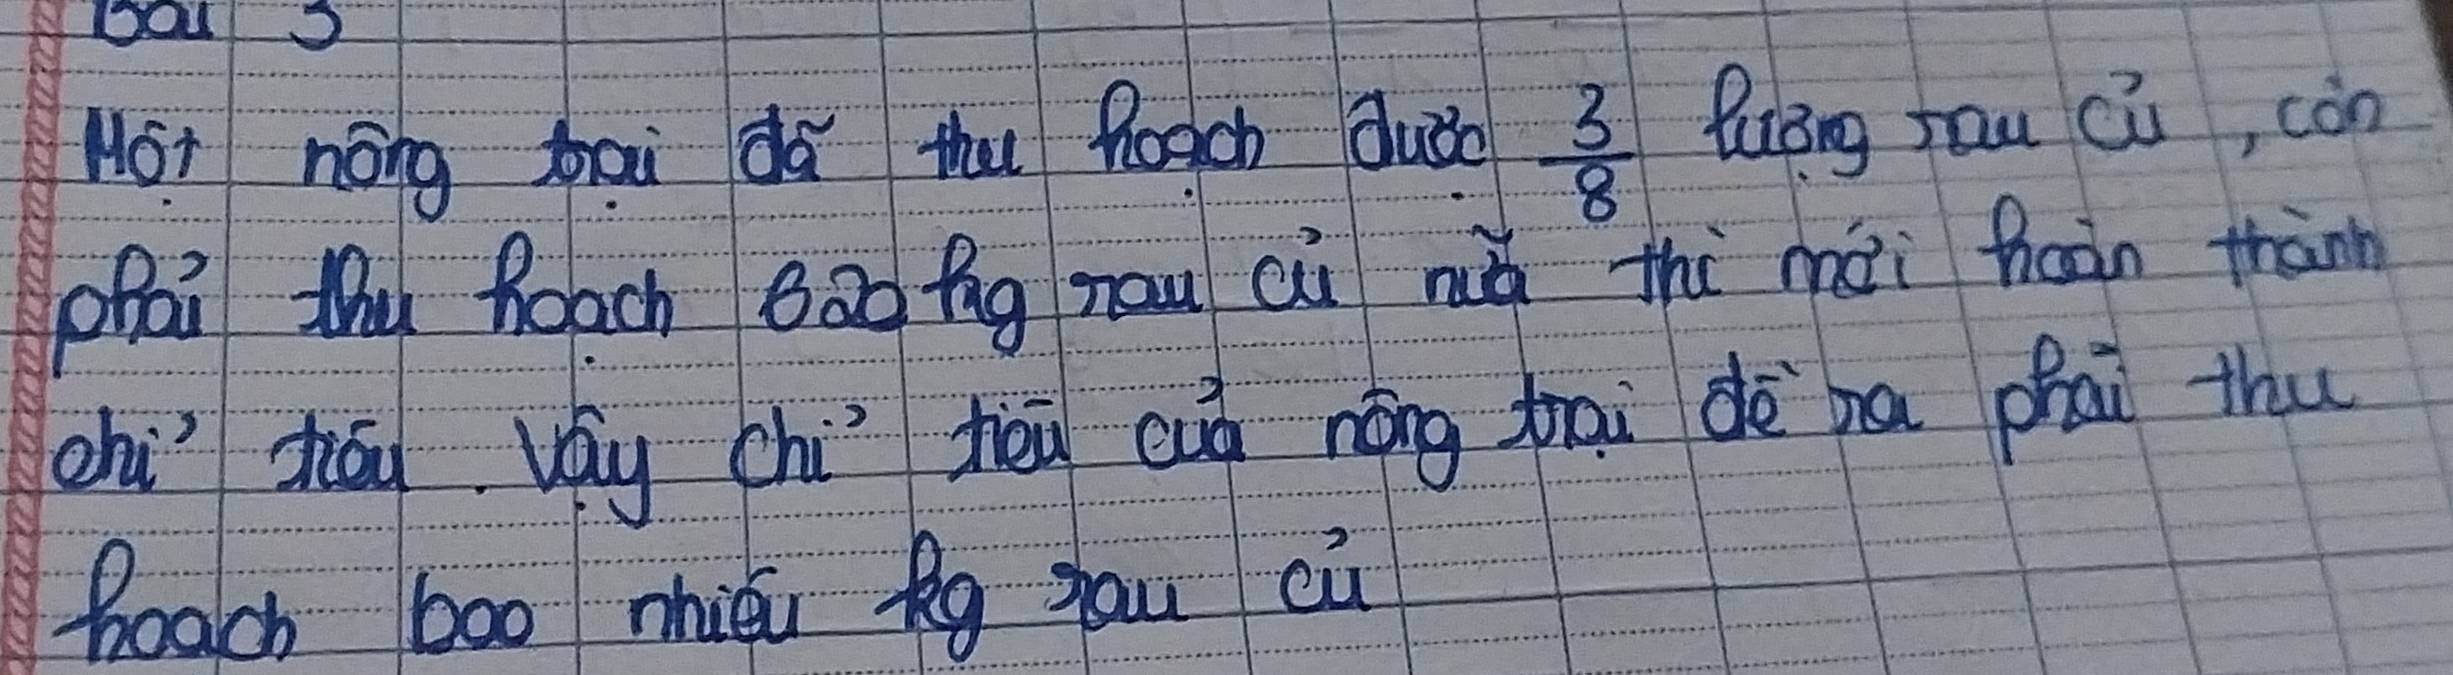 Bài 3
Một nông trại đã thu hoạch được 3/8 lượng rau củ, còn
phải thu hoạch 620 kg rau củ nữa thì mới hoàn thành
chỉ tiêu. Vậy chỉ tiêu của nông trại đề ra phải thu
hoạch bao nhiêu kg rau củ